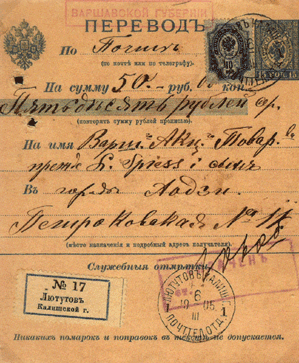 ВАРШАВСКОЙ ГУБЕРНІИ
ПЕРЕВОДЪ
По Почтѣ
(по почтѣ или по телеграфу).
На сумму 50 руб. коп.
Пятьдесятъ рублей
(повторить сумму рублей прописью).
На имя Варш. Акц. Товар.
L. Spiess i сынъ
Въ городъ Лодзь
Петроковская № 
(мѣсто назначенія и подробный адресъ получателя).
Служебныя отмѣтки.
№ 17
Лютутовъ
Калишской г.
ЛЮТУТОВЪ КАЛИШ.
6
III
1 1
ПОЧТ. ТЕЛ. ОТД.
Никакихъ помарокъ и поправокъ въ текстѣ не допускается.